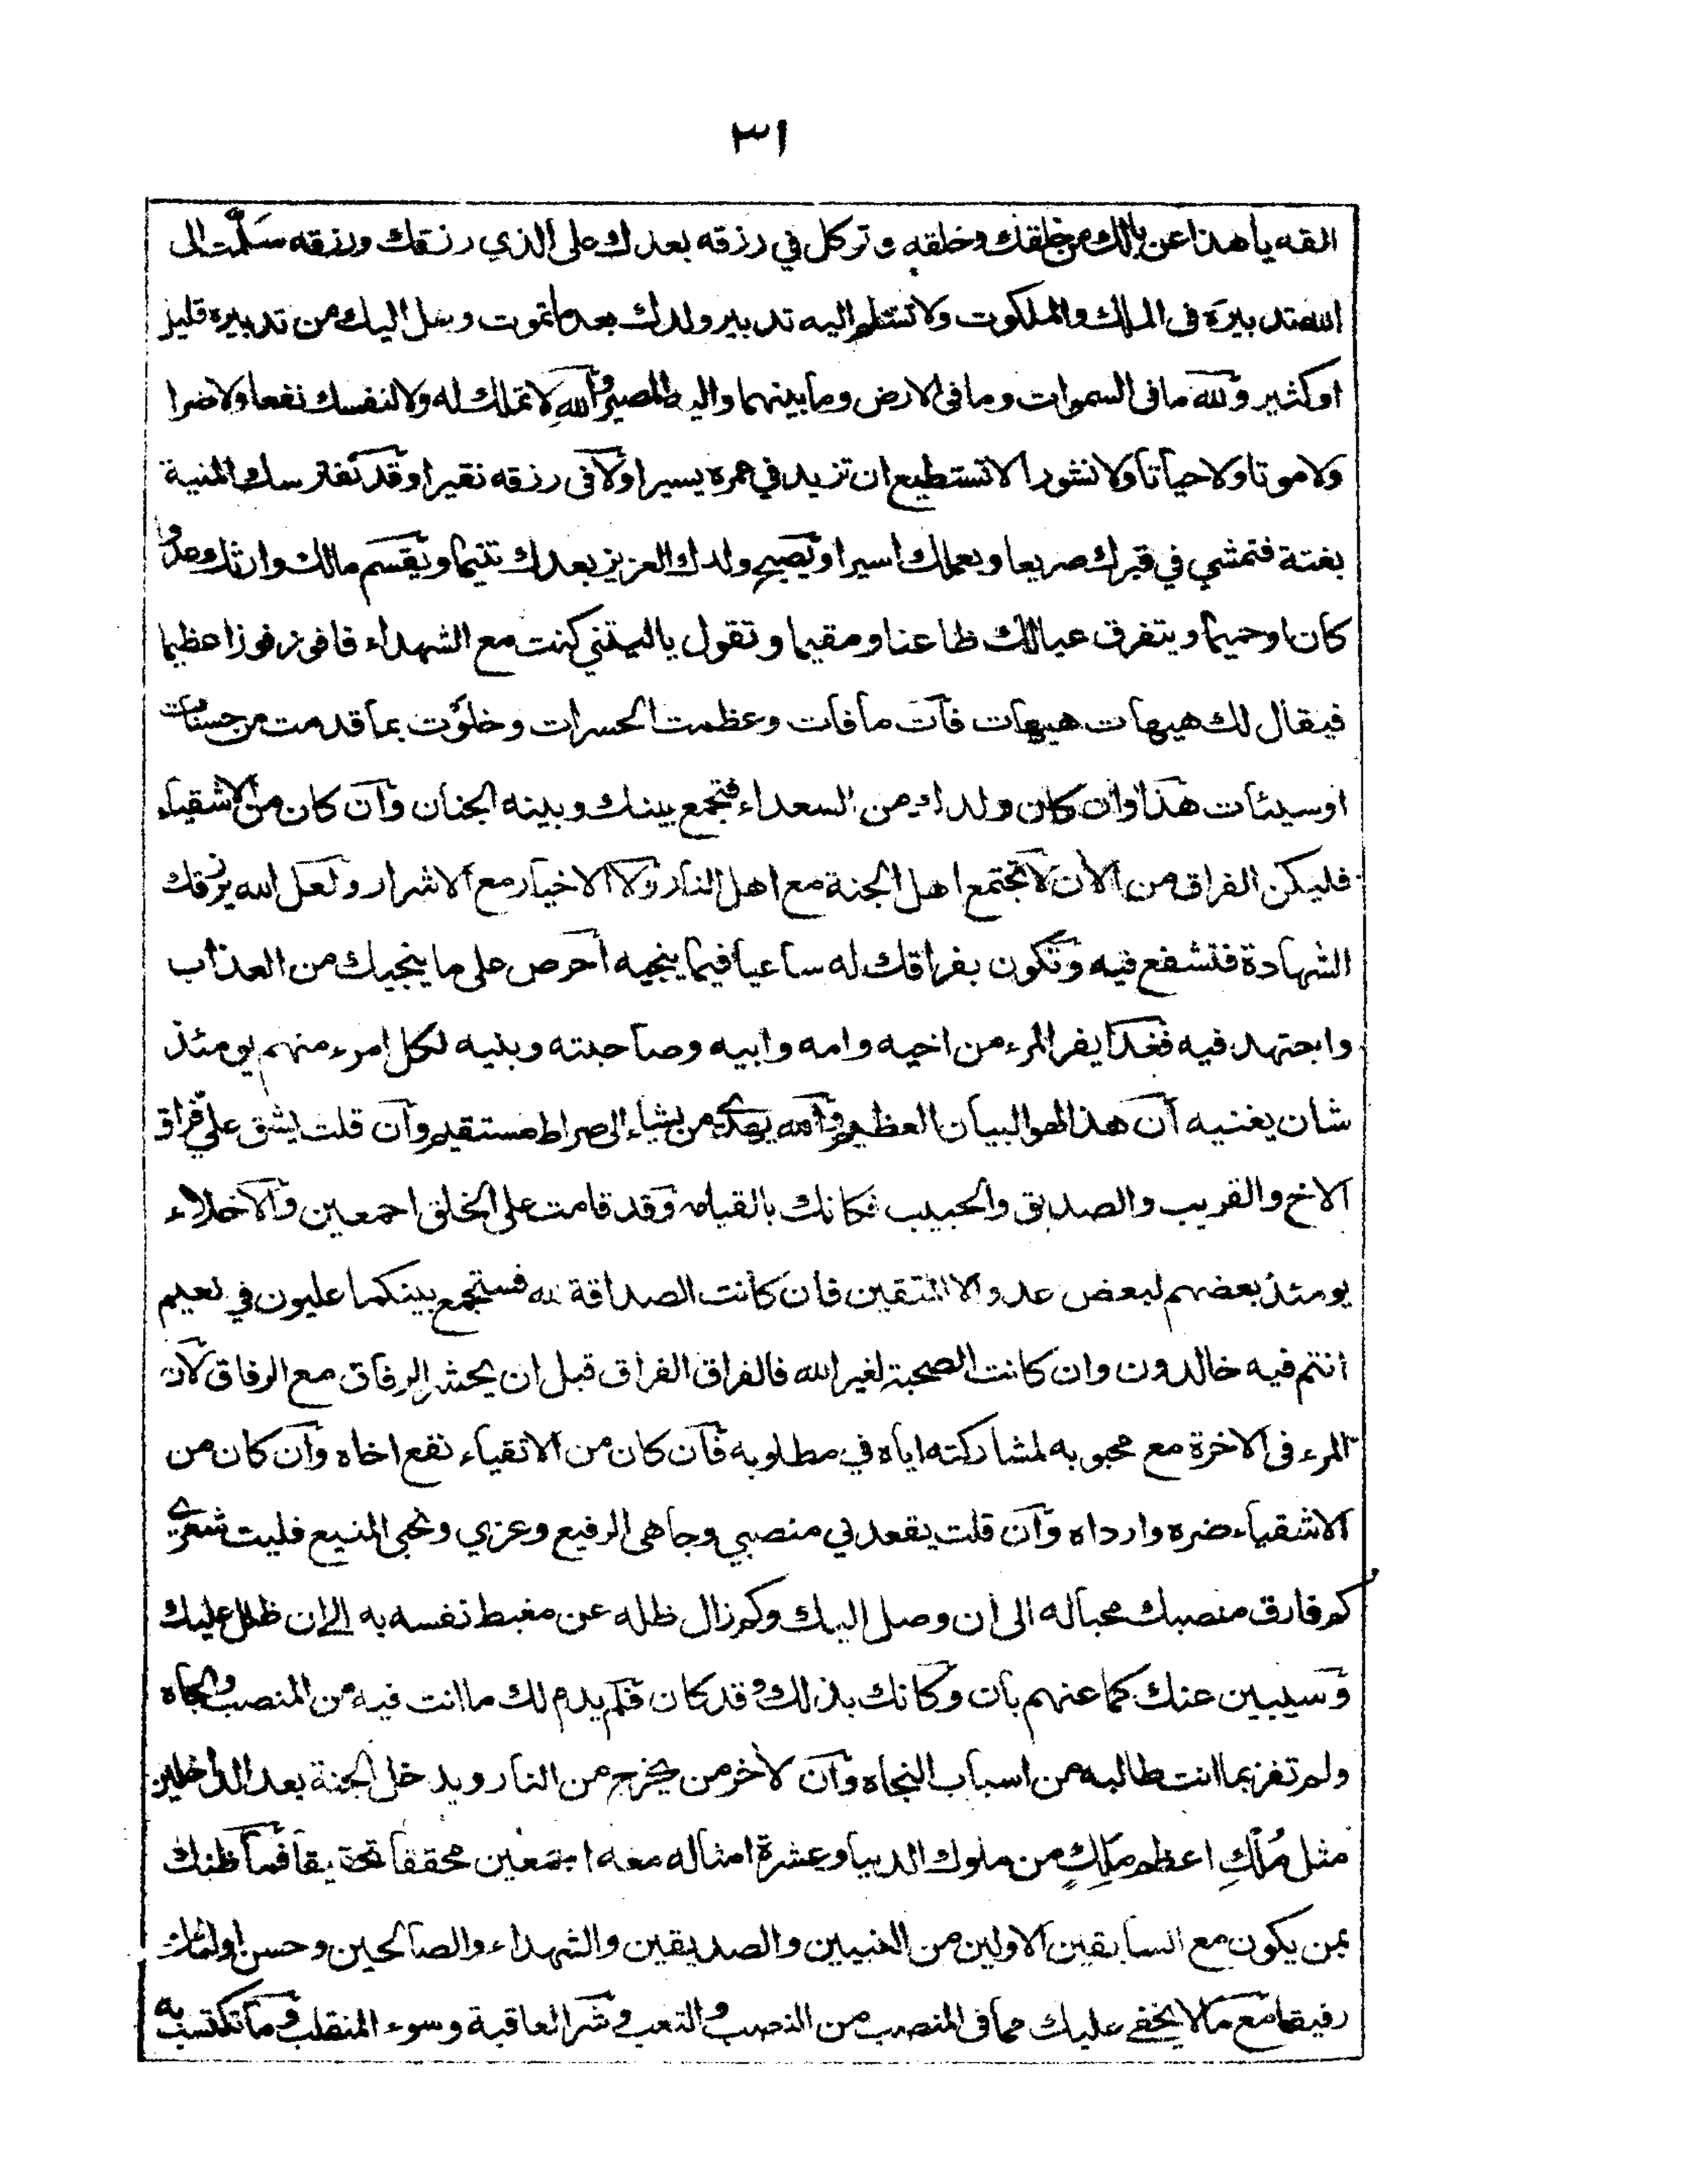 ٣١
القه يا هذا عن بالك من خلقك وخلقه وتوكل في رزقه بعدك على الذي رزقك ورزقه سَلّمت الى
الله تدبيره فى الملك والملكوت ولا تسلم اليه تدبير ولدك بعد ما تموت وهل اليك من تدبيره قليل
او كثير ولله ما فى السموات وما فى الارض وما بينهما واليه المصير والله لا تملك له ولا لنفسك نفعا ولا ضرا
ولا موتا ولا حياتا ولا نشورا لا تستطيع ان تزيد في عمره يسيرا ولا فى رزقه نقيرا وقد تفترسك المنية
بغتة فتمشي في قبرك صريعا وبعملك اسيرا ويصبح ولدك العزيز بعدك يتيما ويقسم مالك وارثك عدوا
كان او حميما ويتفرق عيالك ظاعنا ومقيما وتقول ياليتني كنت مع الشهداء فافوز فوزا عظيما
فيقال لك هيهات هيهات فات ما فات وعظمت الحسرات وخلوت بما قدمت من حسنات
او سيئات هذا وان كان ولدك من السعداء فتجمع بينك وبينه الجنان وان كان من الاشقياء
فليكن الفراق من الآن لا تجتمع اهل الجنة مع اهل النار ولا الاخيار مع الاشرار ولعل الله يرزقك
الشهادة فتشفع فيه وتكون بفراقك له ساعيا فيما ينجيه احرص على ما ينجيك من العذاب
واجتهد فيه فغدا يفر المرء من اخيه وامه وابيه وصاحبته وبنيه لكل امرء منهم يومئذ
شان يغنيه ان هذا لهو البيان العظيم والله يهدي من يشاء الى صراط مستقيم وان قلت يشق على فراق
الاخ والقريب والصديق والحبيب فكانك بالقيامه وقد قامت على الخلق اجمعين والاخلاء
يومئذ بعضهم لبعض عدو الا المتقين فان كانت الصداقة لله فستجمع بينكما عليون في نعيم
انتم فيه خالدون وان كانت الصحبة لغير الله فالفراق الفراق قبل ان يحشر الرفاق مع الرفاق لان
المرء فى الاخرة مع محبوبه لمشاركته اياه في مطلوبه فان كان من الاتقياء نفع اخاه وان كان من
الاشقياء ضره وارداه وان قلت يقعد لي منصبي وجاهى الرفيع وعزي وحجى المنيع فليت شعري
كم فارق منصبك محبا له الى ان وصل اليك وكم زال ظله عن مغبط نفسه به الى ان ظلل عليك
وسيبين عنك كما عنهم بان وكانك بذلك وقد كان فلم يدم لك ما انت فيه من المنصب والجاه
ولم تفز بما انت طالبه من اسباب النجاه وان لاخر من يخرج من النار ويدخل الجنة بعد الداخلين
مثل مُلك اعظم مَلِكٍ من ملوك الدنيا وعشرة امثاله معه اجمعين محققا تحقيقا فما ظنك
بمن يكون مع السابقين الاولين من النبيين والصديقين والشهداء والصالحين وحسن اولئك
رفيقا مع ما لا يخفى عليك مما فى المنصب من النصب والتعب وشر العاقبة وسوء المنقلب وما تكتسب به